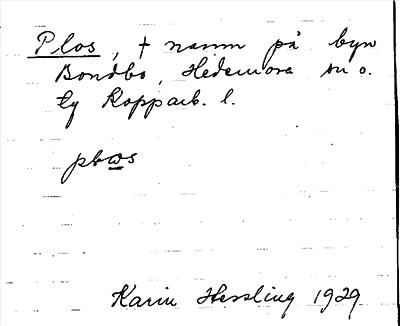 Plos, † namn på byn
Bondbo, Hedemora sn o.
lg Kopparb. l.
plωs
Karin Hessling 1929